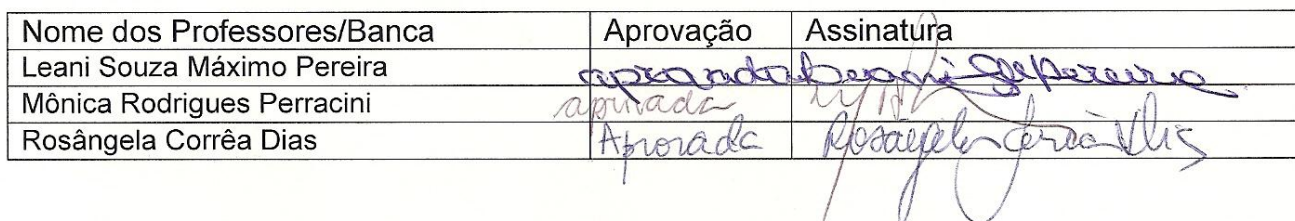 Nome dos Professores/Banca Aprovação Assinatura
Leani Souza Máximo Pereira aprovada Leani SMPereira
Mônica Rodrigues Perracini aprovada
Rosângela Corrêa Dias Aprovada Rosângela Corrêa Dias